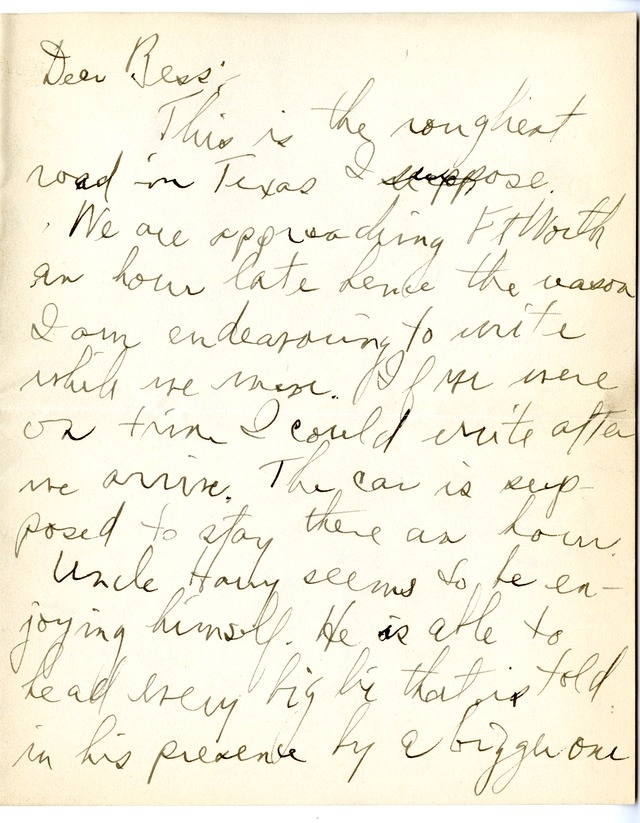 Dear Bess:
This is the roughest
road in Texas I suppose.
We are approaching Ft Worth
an hour late hence the reason
I am endeavoring to write
while we move. If we were
on time I could write after
we arrive. The car is sup-
posed to stay there an hour.
Uncle Harry seems to be en-
joying himself. He is able to
head every big lie that is told
in his presence by a bigger one